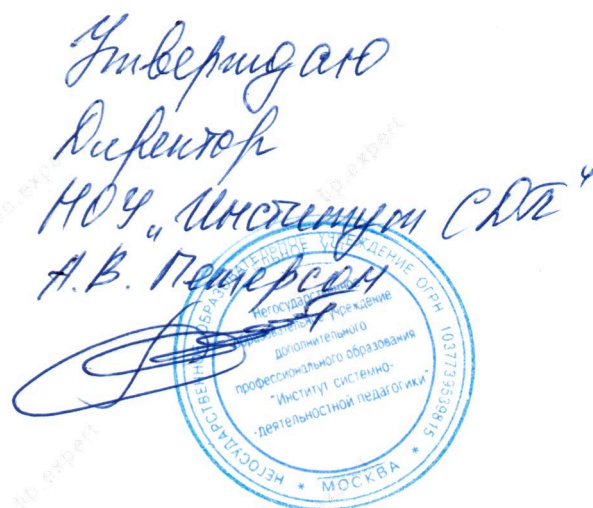 Утверждаю
Директор
НОУ „Институт СДП"
А.В. Петерсон
НЕГОСУДАРСТВЕННОЕ ОБРАЗОВАТЕЛЬНОЕ УЧРЕЖДЕНИЕ ОГРН 1037739539815
* МОСКВА *
Негосударственное
образовательное учреждение
дополнительного
профессионального образования
"Институт системно-
-деятельностной педагогики"